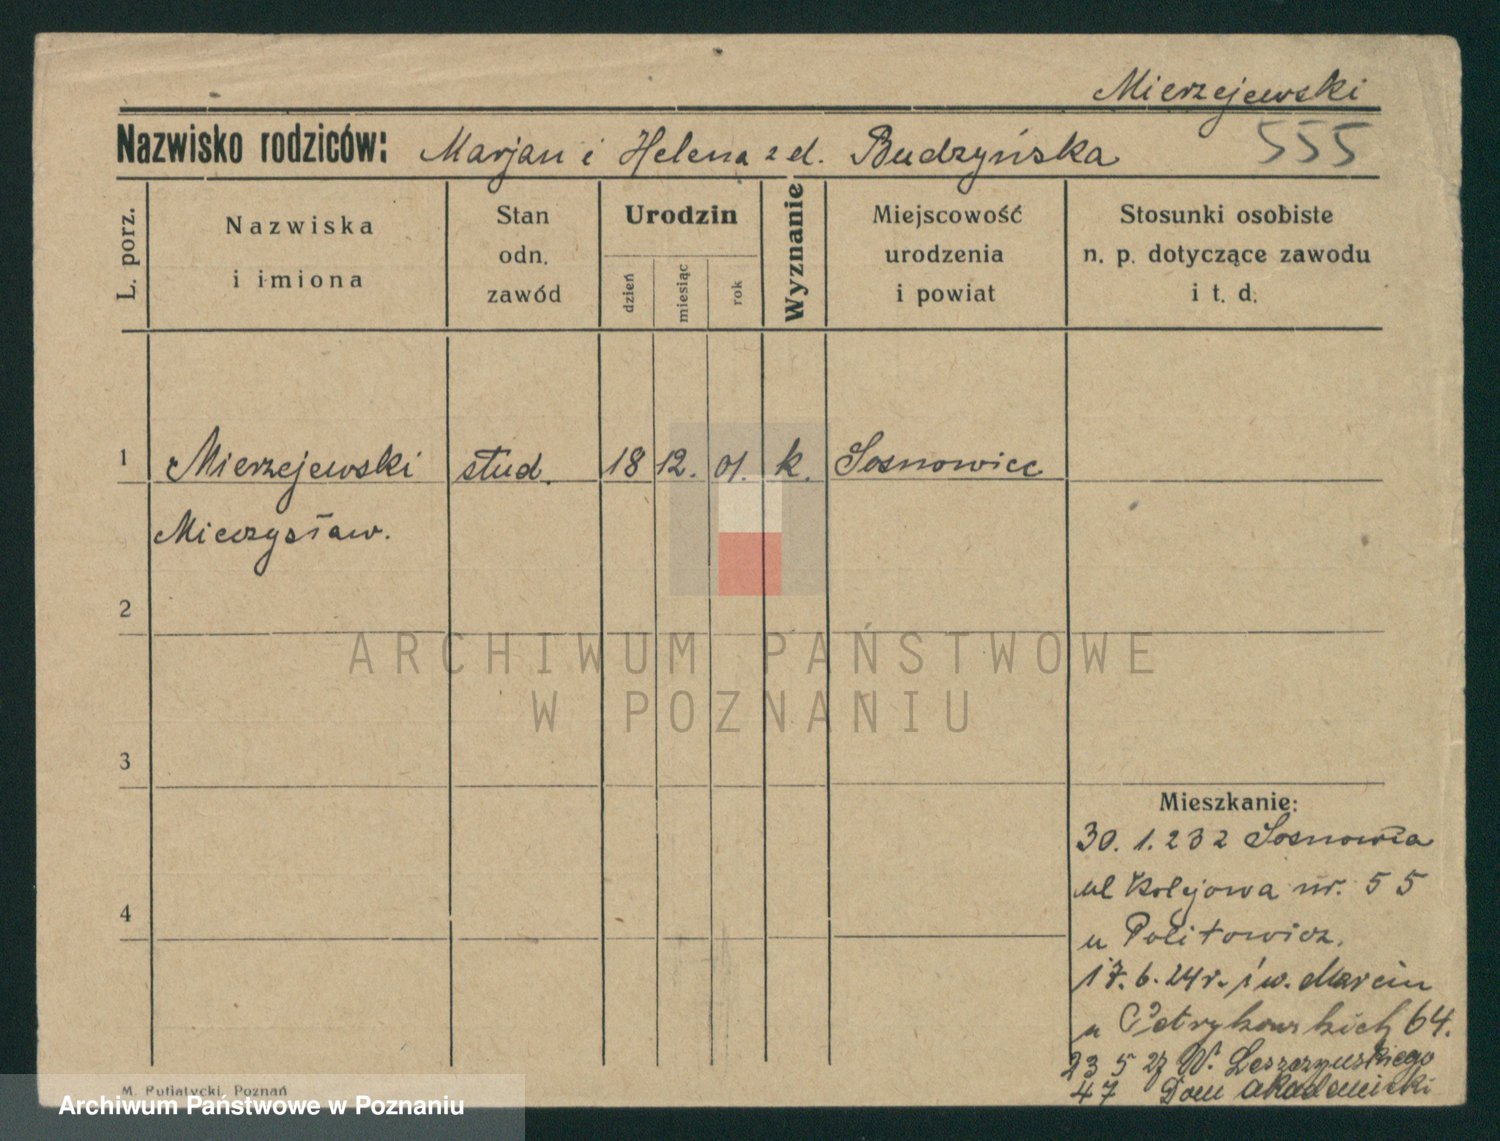 Mierzejewski
Nazwisko rodziców: Marjan i Helena z d. Budzyńska 555
L. porz.
Nazwiska
i imiona
Stan
odn.
zawód
Urodzin
dzień
miesiąc
rok
Wyznanie
Miejscowość
urodzenia
i powiat
Stosunki osobiste
n. p. dotyczące zawodu
i t. d.
1 Mierzejewski stud. 18 12. 01. k. Sosnowiec
Mieczysław.
2
ARCHIWUM PAŃSTWOWE
W POZNANIU
3
Mieszkanie:
30. 1. 232 Sosnowca
ul Kolejowa nr. 55
4
u Politowicz.
17. 6. 24 r. św. Marcin
u Petrykowskich 64.
23 5 27 W. Leszczynskiego
47 Dom akademicki
M. Putiatycki, Poznań
Archiwum Państwowe w Poznaniu